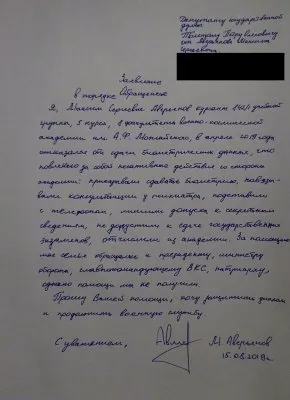 Депутату государственной
думы
Толстому Петру Олеговичу
от Аверьянова Максима
Сергеевича
Заявление
в порядке обращения
Я, Максим Сергеевич Аверьянов курсант 1421 учебной
группы, 5 курса, 1 факультета Военно-космической
академии им. А.Ф. Можайского, в апреле 2019 года
отказался от сдачи биометрических данных, что
повлекло за собой негативные действия со стороны
академии: принуждали сдавать биометрию, навязы-
вали консультации у психиатра, подставили
с телефоном, лишили допуска к секретным
сведениям, не допустили к сдаче государственных
экзаменов, отчислили из академии. За помощью
моя семья обращалась к президенту, министру
обороны, главнокомандующему ВКС, патриарху,
однако помощи мы не получили.
Прошу Вашей помощи, хочу защитить диплом
и продолжить военную службу.
С уважением,
М. Аверьянов
15.08.2019г.